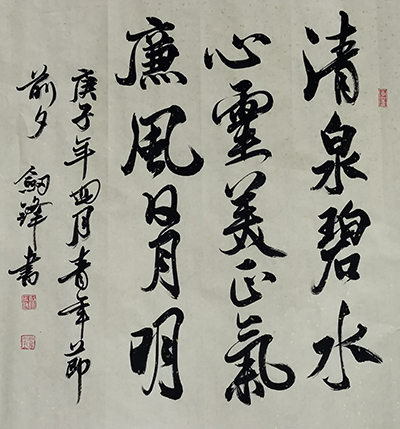 清泉碧水
心靈美正氣
廉風日月明
庚子年四月青年節
前夕 劍鋒書